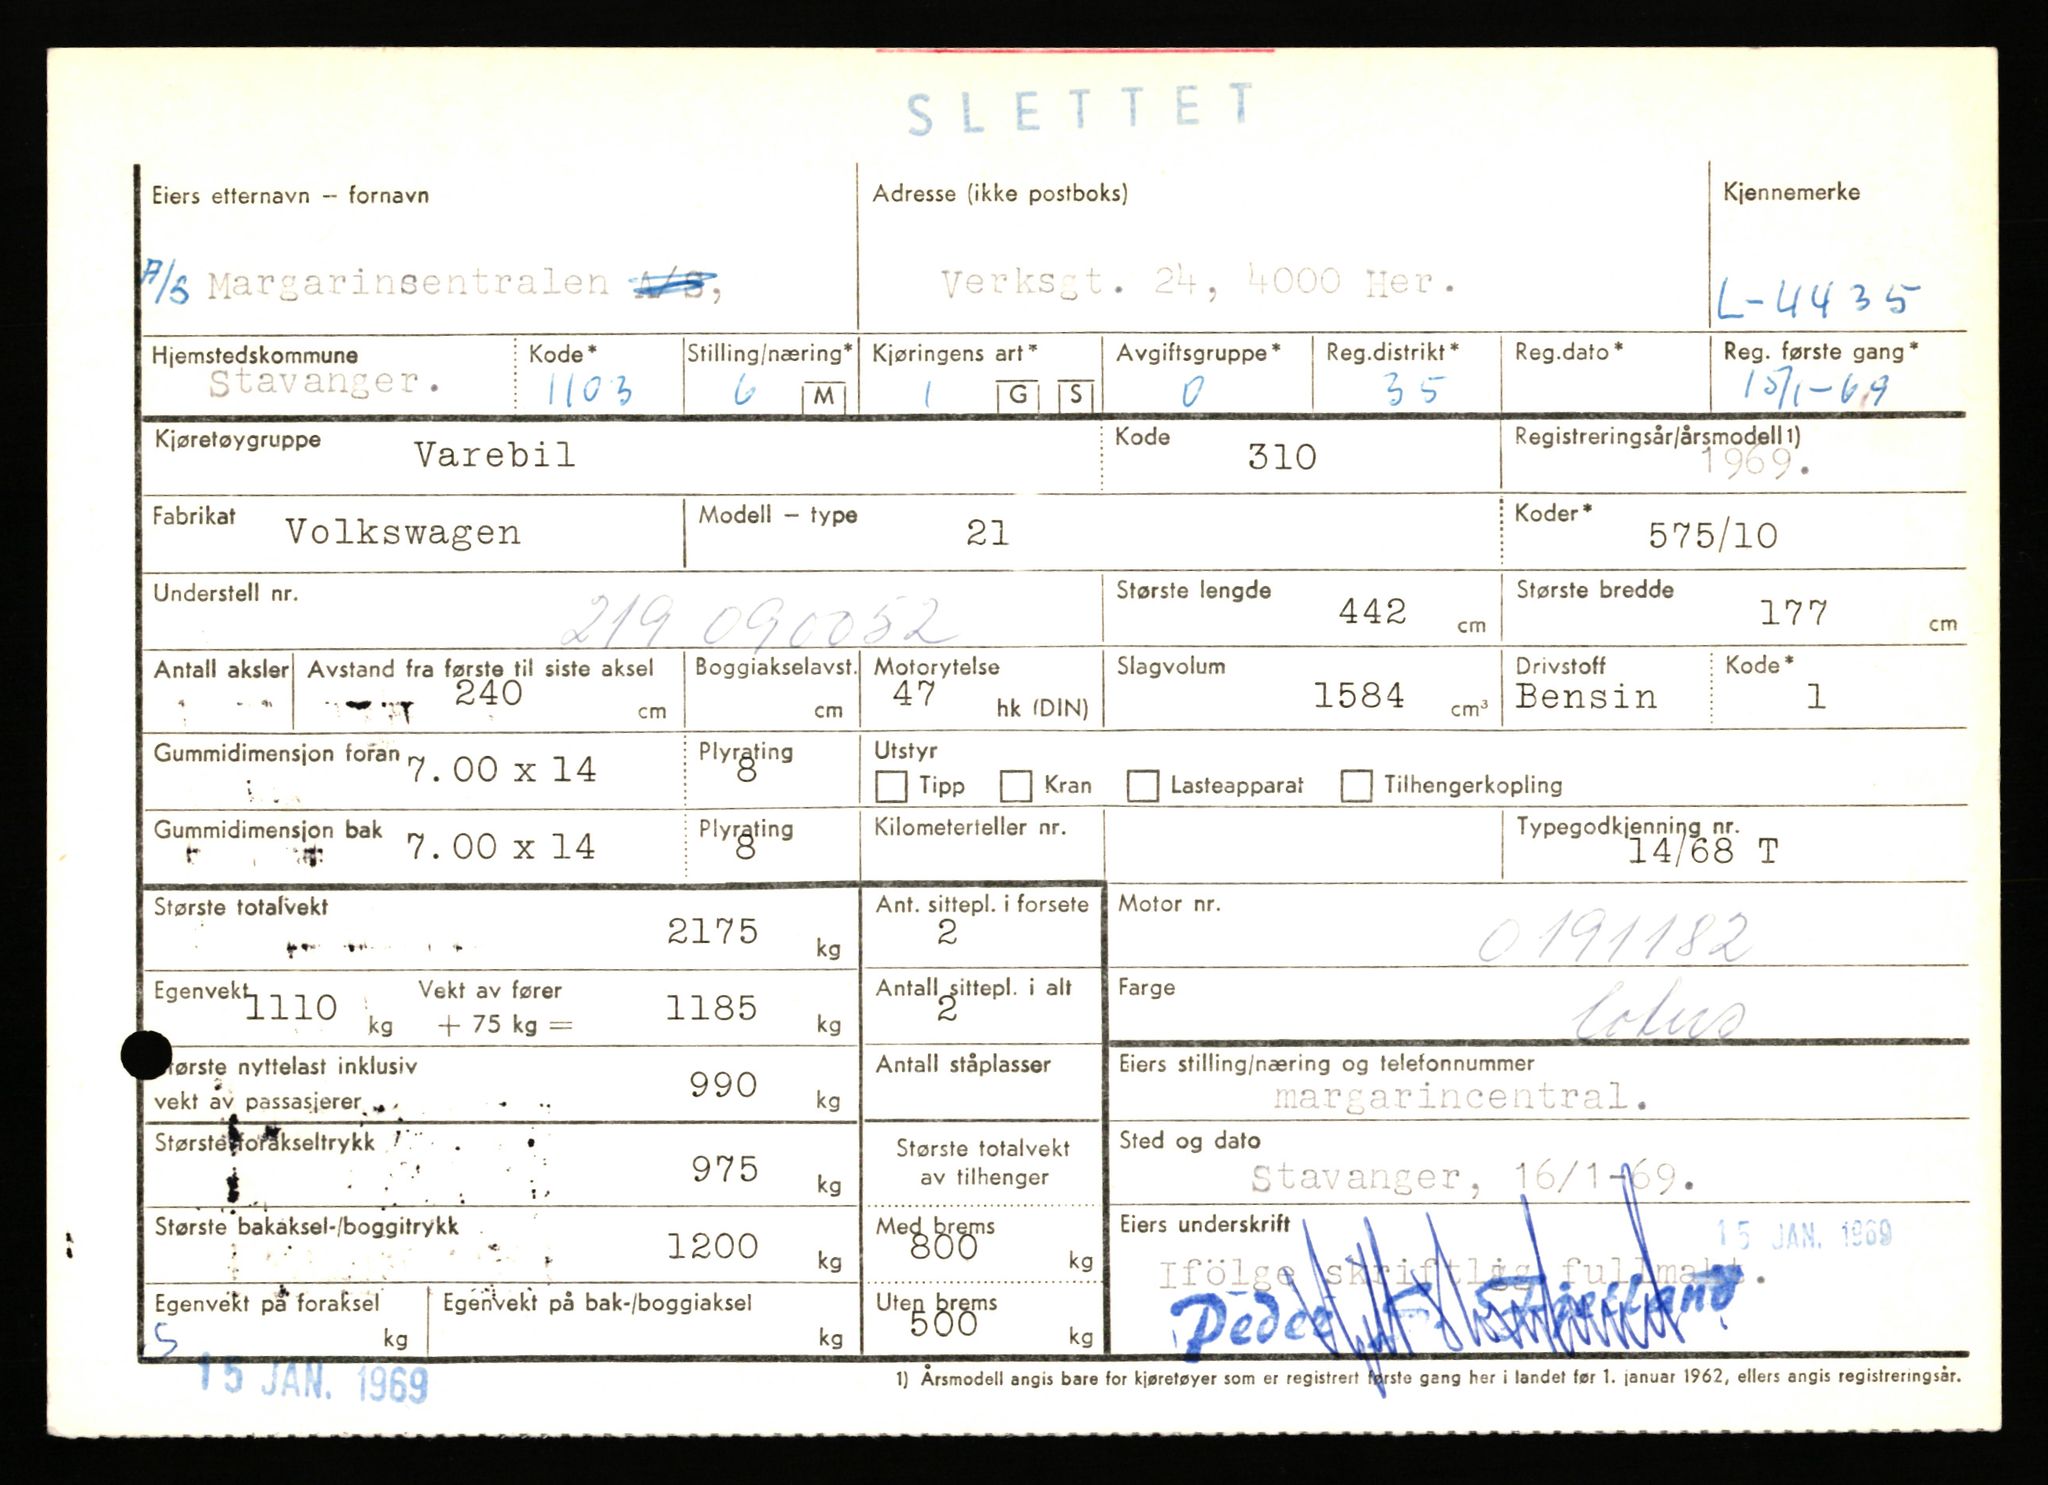 SLETTET
Eiers etternavn – fornavn
Adresse (ikke postboks)
Kjennemerke
A/S Margarinsentralen A/S,
Verksgt. 24, 4000 Her.
L-4435
Hjemstedskommune
Kode*
Stilling/næring*
Kjøringens art*
Avgiftsgruppe*
Reg.distrikt*
Reg.dato*
Reg. første gang*
Stavanger.
1103
6 M
1 G S
0
35
15/1-69
Kjøretøygruppe Varebil
Kode 310
Registreringsår/årsmodell1)
1969.
Fabrikat Volkswagen
Modell – type 21
Koder* 575/10
Understell nr. 219 090052
Største lengde 442 cm
Største bredde 177 cm
Antall aksler
Avstand fra første til siste aksel
240 cm
Boggiakselavst.
cm
Motorytelse
47 hk (DIN)
Slagvolum
1584 cm³
Drivstoff
Bensin
Kode*
1
Gummidimensjon foran 7.00 x 14
Plyrating
8
Utstyr
Tipp Kran Lasteapparat Tilhengerkopling
Gummidimensjon bak 7.00 x 14
Plyrating
8
Kilometerteller nr.
Typegodkjenning nr.
14/68 T
Største totalvekt
2175 kg
Ant. sittepl. i forsete
2
Motor nr.
0191182
Egenvekt 1110 kg
Vekt av fører
+ 75 kg = 1185 kg
Antall sittepl. i alt
2
Farge
lotus
Største nyttelast inklusiv
vekt av passasjerer
990 kg
Antall ståplasser
Eiers stilling/næring og telefonnummer
margarincentral.
Største forakseltrykk
975 kg
Største totalvekt
av tilhenger
Sted og dato
Stavanger, 16/1-69.
Største bakaksel-/boggitrykk
1200 kg
Med brems
800 kg
Eiers underskrift
15 JAN. 1969
Ifölge skriftlig fullmakt.
Egenvekt på foraksel
kg
Egenvekt på bak-/boggiaksel
kg
Uten brems
500 kg
S
15 JAN. 1969
1) Årsmodell angis bare for kjøretøyer som er registrert første gang her i landet før 1. januar 1962, ellers angis registreringsår.